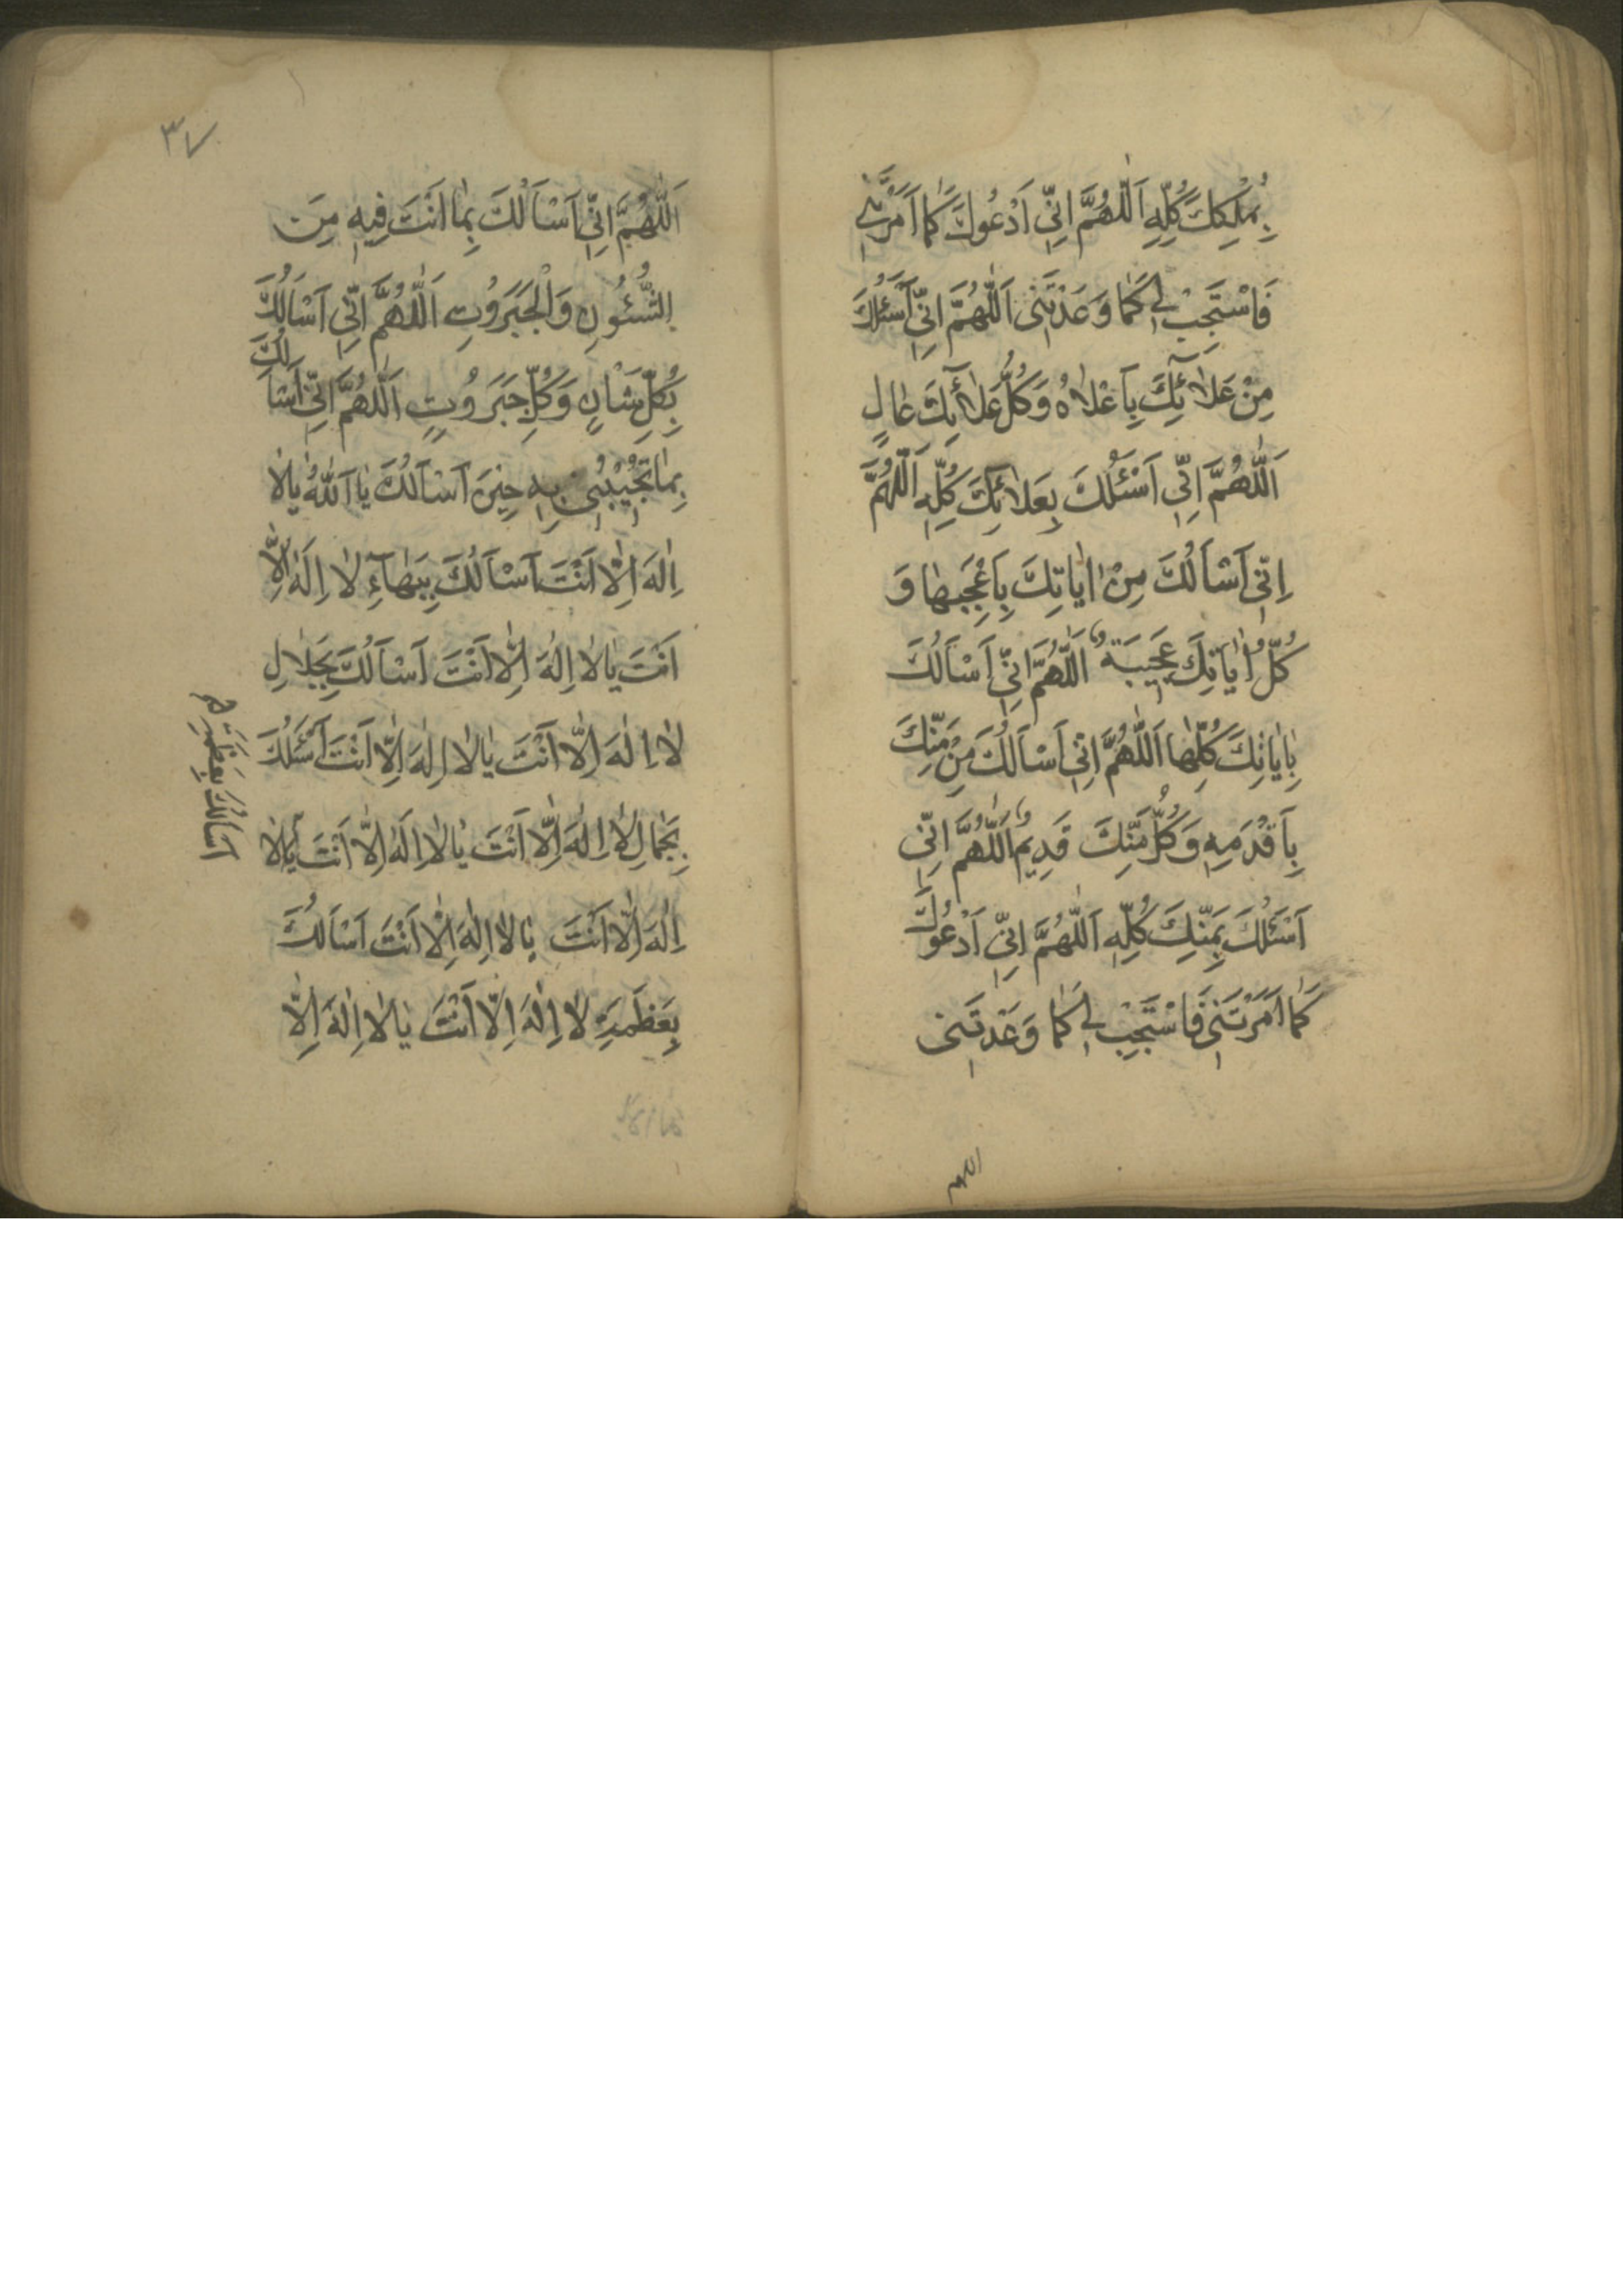 بِمُلْكِكَ كُلِّهِ اَللّٰهُمَّ اِنّٖي اَدْعُوكَ كَمٰا اَمَرْتَنٖي
فَاسْتَجِبْ لٖي كَمٰا وَعَدْتَنٖى اَللّٰهُمَّ اِنّٖي اَسْئَلُكَ
مِنْ عَلاٰئِكَ بِاَعْلاٰهُ وَكُلُّ عَلاٰئِكَ عٰالٍ
اَللّٰهُمَّ اِنّٖي اَسْئَلُكَ بِعَلاٰئِكَ كُلِّهِ اَللّٰهُمَّ
اِنّٖى اَسْاَلُكَ مِنْ اٰيٰاتِكَ بِاَعْجَبِهٰا وَ
كُلُّ اٰيٰاتِكَ عَجٖيبَةٌ اَللّٰهُمَّ اِنّٖي اَسْاَلُكَ
بِاٰيٰاتِكَ كُلِّهٰا اَللّٰهُمَّ اِنّٖى اَسْاَلُكَ مِنْ مَنِّكَ
بِاَقْدَمِهٖ وَكُلُّ مَنِّكَ قَدٖيمٌ اَللّٰهُمَّ اِنّٖى
اَسْئَلُكَ بِمَنِّكَ كُلِّهِ اَللّٰهُمَّ اِنّٖي اَدْعُوكَ
كَمٰا اَمَرْتَنٖى فَاسْتَجِبْ لٖي كَمٰا وَعَدْتَنٖى
اللهم
٣٧
اَللّٰهُمَّ اِنّٖى اَسْاَلُكَ بِمٰا اَنْتَ فٖيهِ مِنَ
الشُّئُونِ وَالْجَبَرُوتِ اَللّٰهُمَّ اِنّٖى اَسْاَلُكَ
بِكُلِّ شَاْنٍ وَكُلِّ جَبَرُوتٍ اَللّٰهُمَّ اِنّٖى اَسْاَلُكَ
بِمٰا تُجٖيبُنٖى بِهٖ حٖينَ اَسْاَلُكَ يٰا اَللّٰهُ يٰا لاٰ
اِلٰهَ اِلاّٰ اَنْتَ اَسْاَلُكَ بِبَهٰآءِ لاٰ اِلٰهَ اِلاّٰ
اَنْتَ يٰا لاٰ اِلٰهَ اِلاّٰ اَنْتَ اَسْاَلُكَ بِجَلاٰلِ
لاٰ اِلٰهَ اِلاّٰ اَنْتَ يٰا لاٰ اِلٰهَ اِلاّٰ اَنْتَ اَسْئَلُكَ
بِجَمٰالِ لاٰ اِلٰهَ اِلاّٰ اَنْتَ يٰا لاٰ اِلٰهَ اِلاّٰ اَنْتَ يٰا لاٰ
اِلٰهَ اِلاّٰ اَنْتَ يٰا لاٰ اِلٰهَ اِلاّٰ اَنْتَ اَسْاَلُكَ
بِعَظَمَةِ لاٰ اِلٰهَ اِلاّٰ اَنْتَ يٰا لاٰ اِلٰهَ اِلاّٰ
اسالك بعظمة